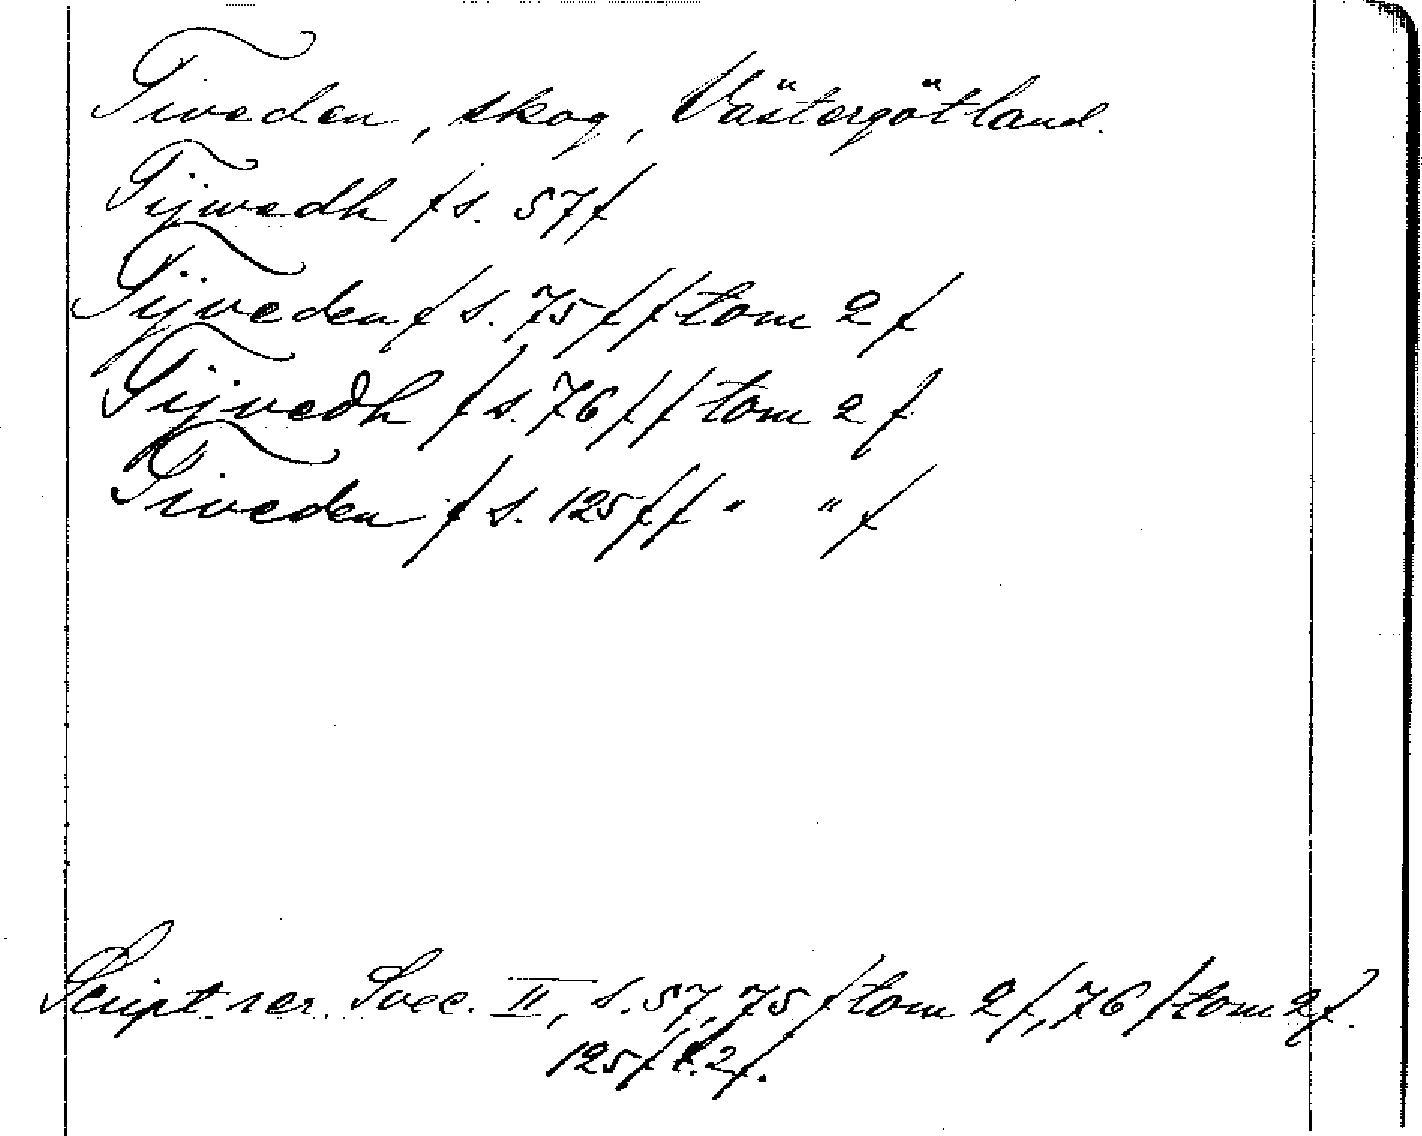 Tiveden, skog, Västergötland.
Tijwedh /s. 57/
Tijveden /s. 75/ /tom 2/
Tijvedh /s. 76/ /tom 2/
Tiveden /s. 125/ / " " /
Script. rer. Svec. II, s. 57, 75 /tom 2/, 76 /tom 2/.
125 /t. 2/.